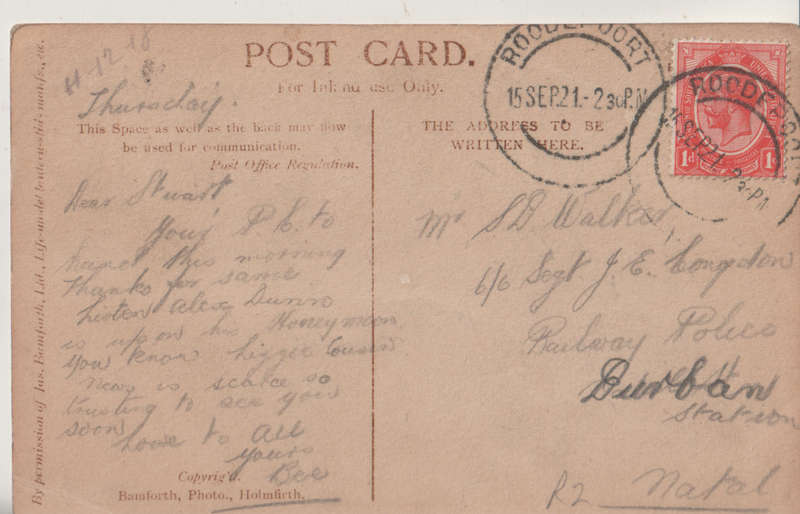 H-12.18
POST CARD.
For Inland use Only.
Thursday.
This Space as well as the back may now
be used for communication.
Post Office Regulation.
Dear Stuart
Your P C. to
hand this morning
Thanks for same
Listen Alex Dunn
is up on his Honeymoon
you know Lizzie Cousin
News is scarce so
trusting to see you
soon
Love to All
yours
Bee
Copyrig't.
Bamforth, Photo., Holmfirth.
By permission of Jas. Bamforth, Ltd., Life-model lantern slide manfs., &c.
THE ADDRESS TO BE
WRITTEN HERE.
ROODEPOORT
15 SEP.21.-2 30P.M
ROODEPOORT
15 SEP.21 2 30 P.M
1d 1d
Mr S.D. Walker,
c/o Sgt J. E. Congdon
Railway Police
Durban
Station
Natal
R2